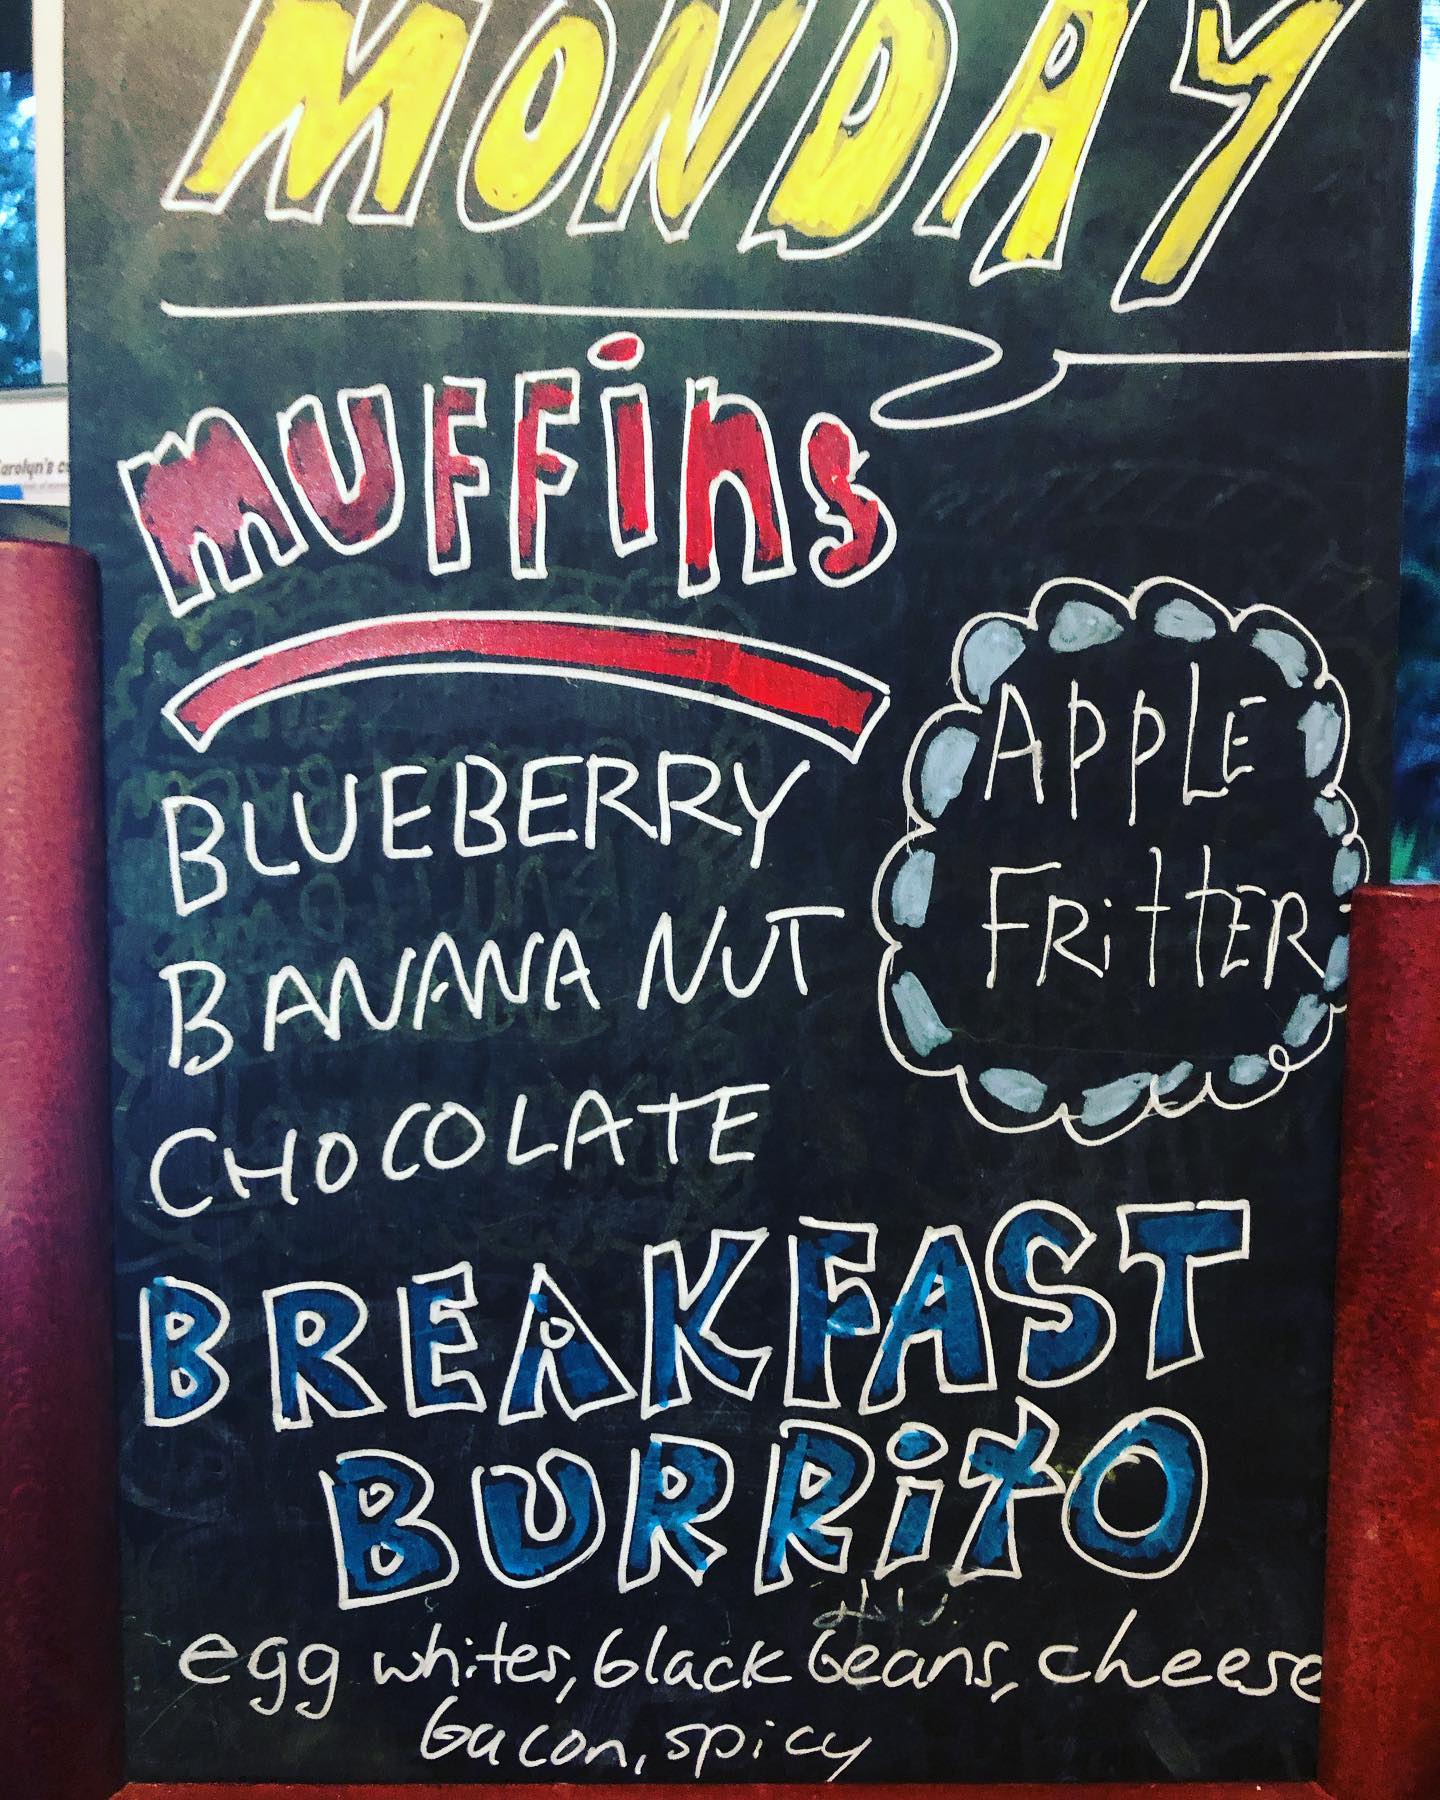 MONDAY
MUFFiNS
BLUEBERRY
BANANA NUT
CHOCOLATE
APPLE
FRITTER
BREAKFAST
BURRiTO
egg whites, black beans, cheese
bacon, spicy